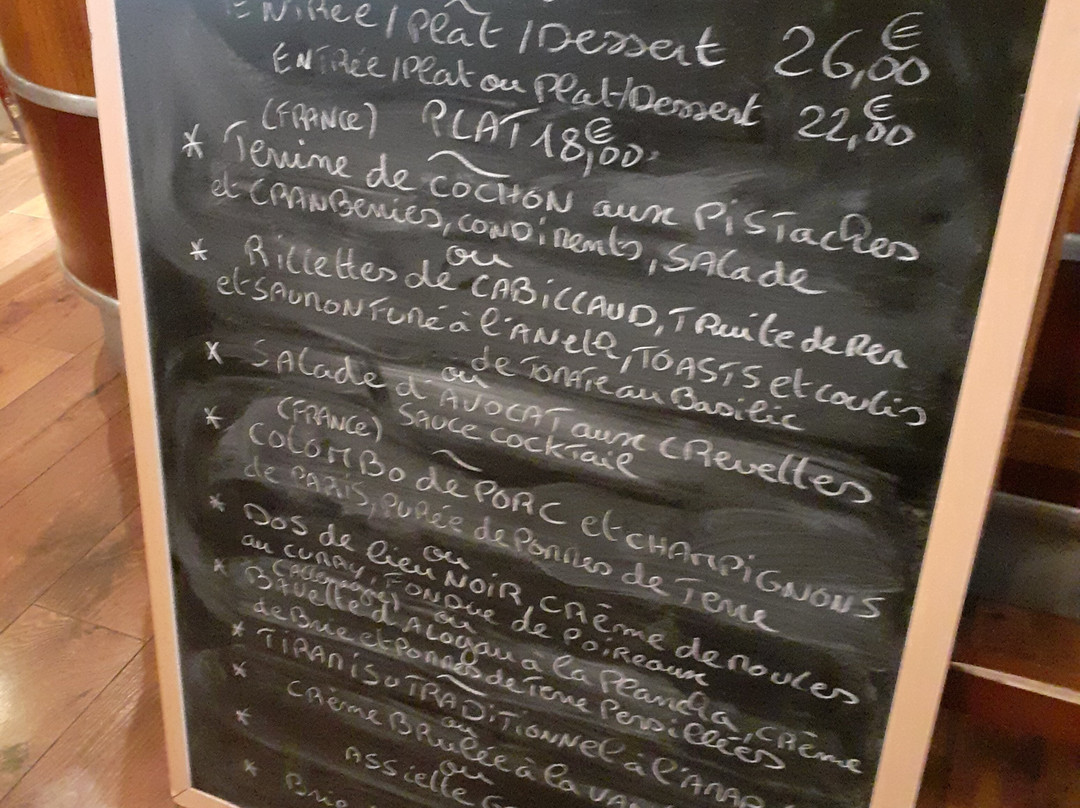 ENTRée / Plat / Dessert 26,00 €
ENTRée / Plat ou Plat / Dessert 22,00 €
(FRANCE) PLAT 18,00 €
* Terrine de COCHON aux PISTaches
et CRANBerries, CONDiments, SALade
ou
* Rillettes de CABILLAUD, TRuite de Mer
et SAUMON Fumé à l'ANeth, TOASTS et coulis
de TOMATE au Basilic
ou
* SALade d'AVOCAT aux CRevettes
SAUCE COCKTAIL
(FRANCE)
* COLOMBo de PORC et CHAMPIGNONS
de PARIS, PURée de Pommes de Terre
ou
* DOS de lieu NOIR, CRème de Moules
au CURRY, FONDue de Poireaux
ou
(Allemagne)
* BAvette d'ALoyau à la Plancha, CRème
de Brie et Pommes de Terre Persillées
* TIRAMISu TRADITIONNEL à l'AMAR
ou
* CRème BRulée à la VAN
ou
* ASSIette G
* Brie